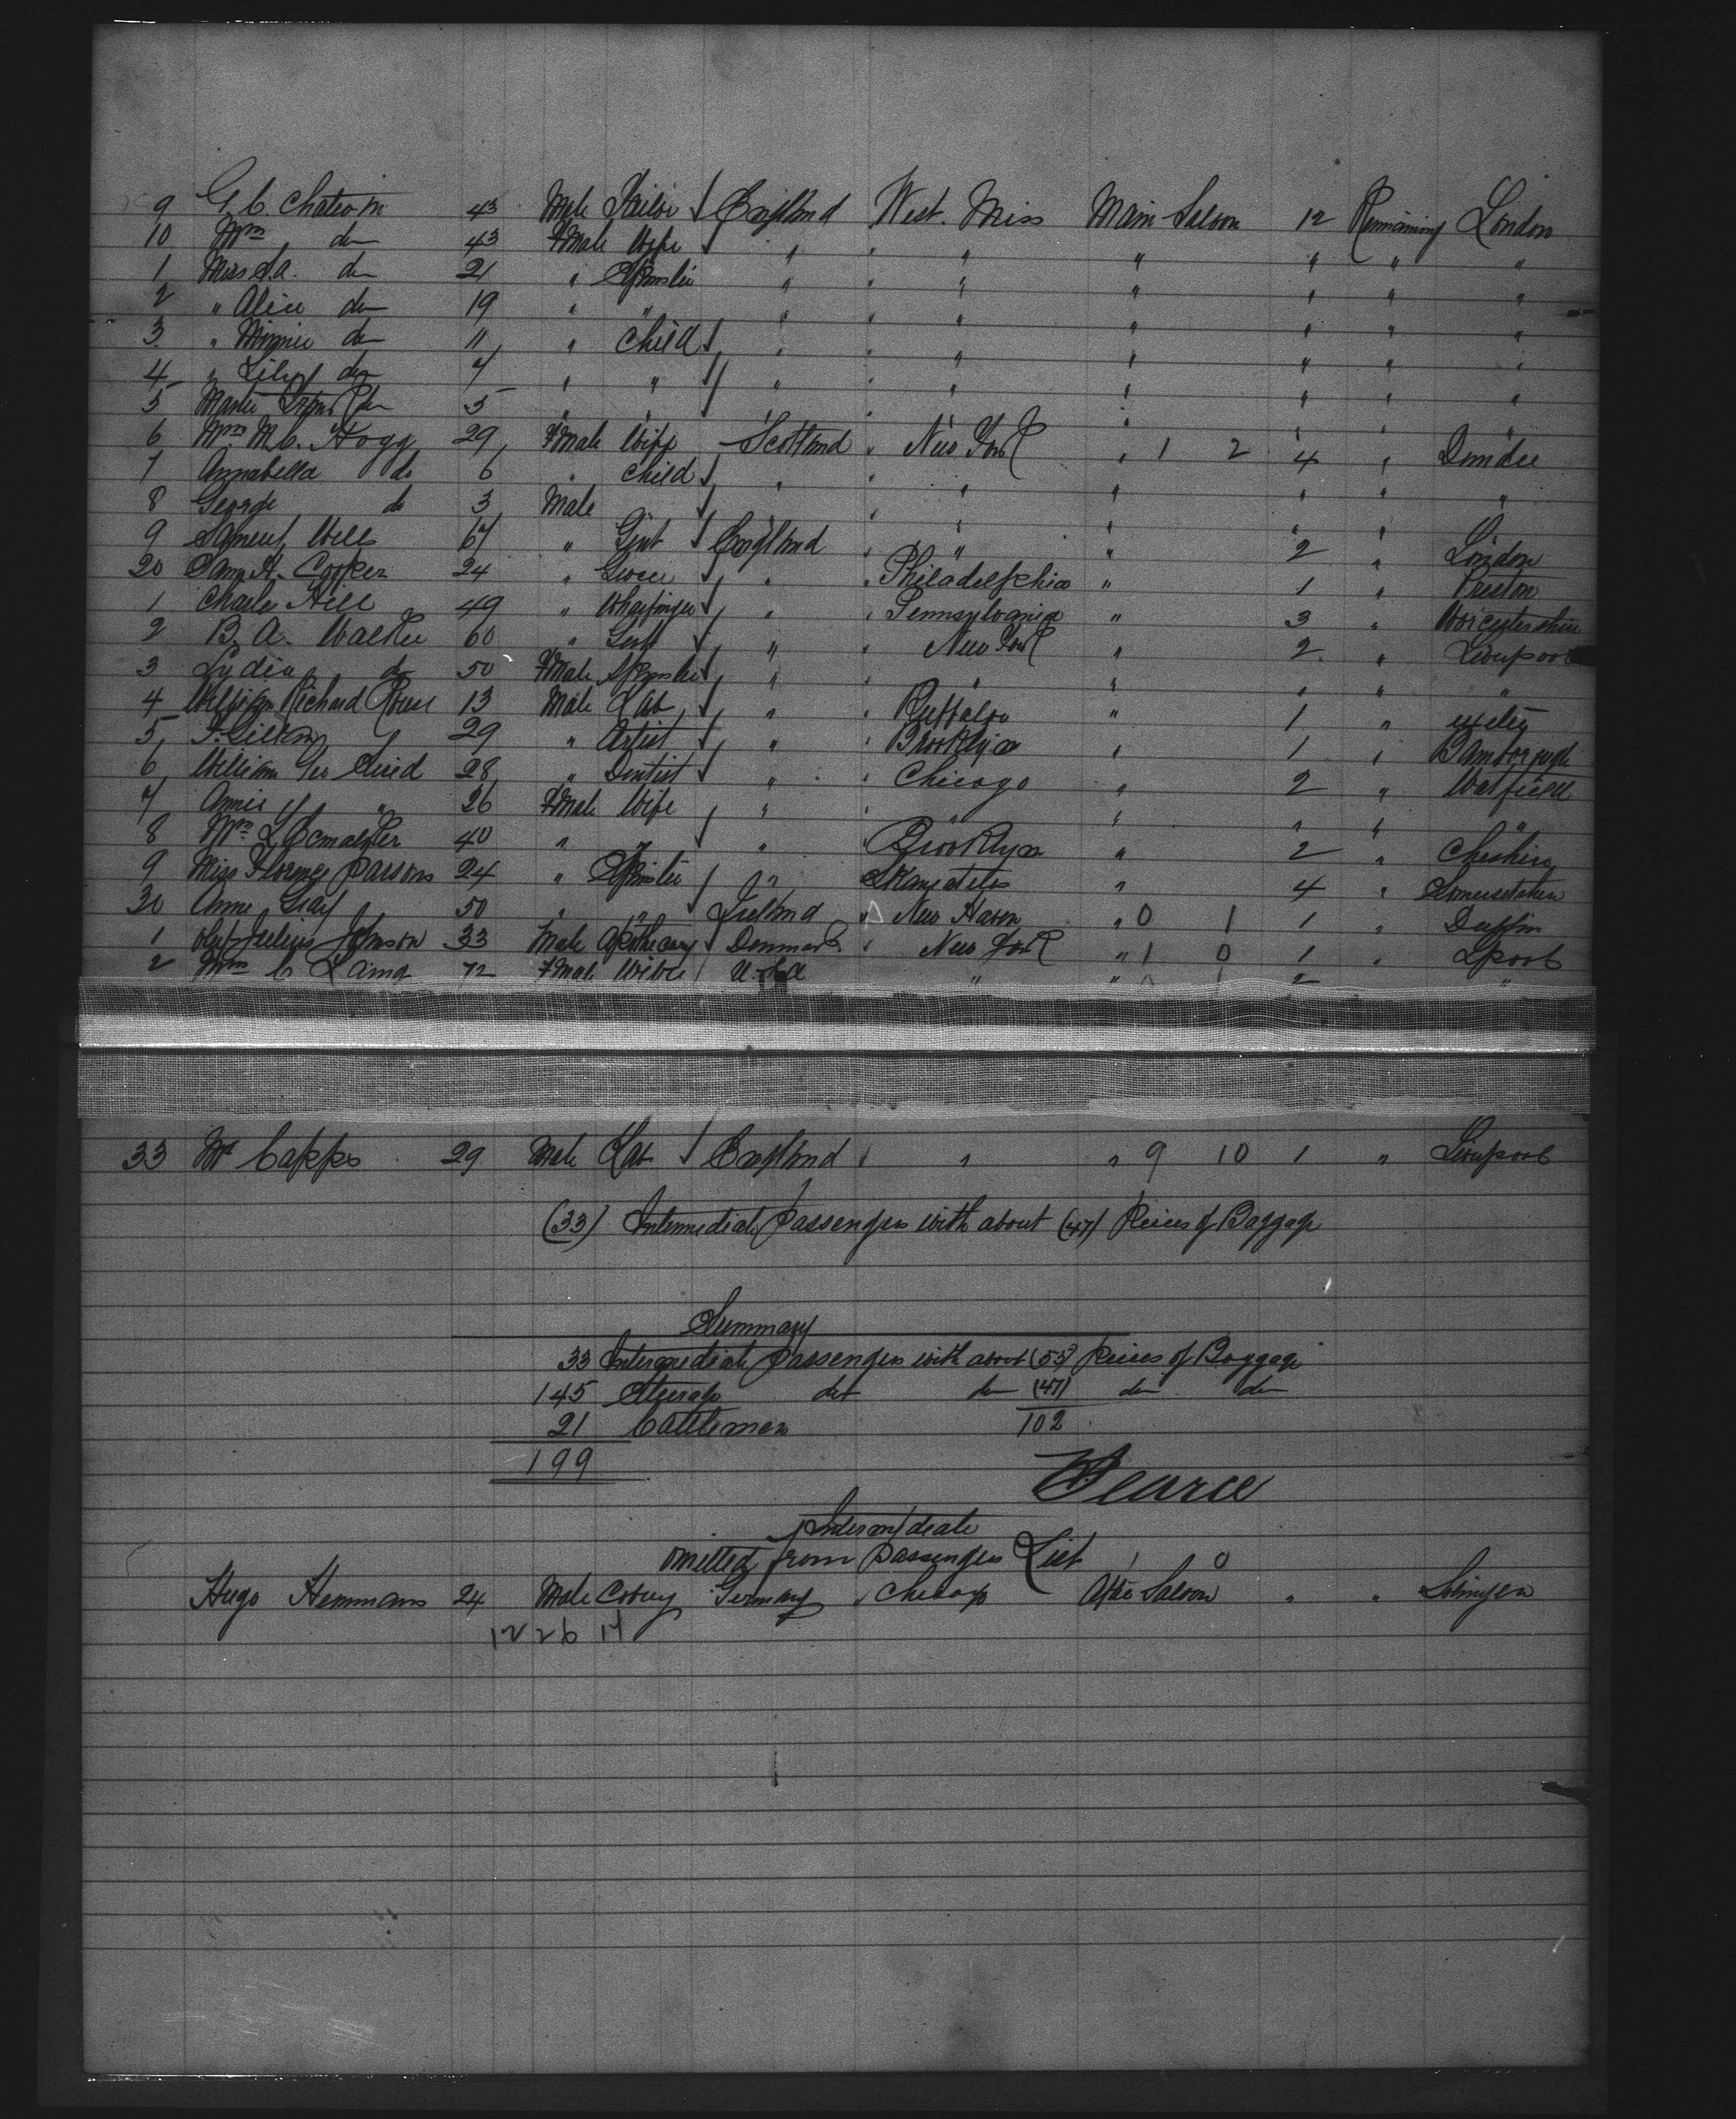 9 G. C. Chatwin 43 Male Tailor England West. Miss Main Saloon 12 Remaining London
10 Mrs do 43 Fmale Wife " " " " " "
1 Miss S.A. do 21 " Spinster " " " " " "
2 " Alice do 19 " " " " " " " "
3 " Minnie do 11 " Child " " " " " "
4 " Lily do 7 " " " " " " " "
5 Master do 5 " " " " "
6 Mrs M. C. Hogg 29 Fmale Wife Scotland " New York " 1 2 4 " Dundee
7 Annabella do 6 " Child " " " " " " "
8 George do 3 Male " " " " "
9 Samuel Wells 67 " Gent England " " " 2 " London
20 Sam H. Cooper 24 " Grocer " " Philadelphia " 1 " Preston
1 Charles Hill 49 " Wharfinger " " Pennsylvania " 3 " Worcestershire
2 B. A. Walker 60 " Gent " " New York " 2 " Liverpool
3 Lydia do 50 Fmale Spinster " " " " " " "
4 William Richard Rouse 13 Male Lab " " Buffalo " 1 " Exeter
5 29 " Artist " " Brooklyn " 1 " Bamborough
6 William Geo 28 " Dentist " " Chicago " 2 "
7 Annie " 26 Fmale Wife " " " " " " "
8 Mrs L 40 " " " Brooklyn " 2 " Cheshire
9 Miss Florence Parsons 24 " Spinster " Skaneateles " 4 " Somersetshire
30 Anne Gray 50 " " Ireland " New Haven " 0 1 1 " Dublin
1 Olaf Julius Johnson 33 Male Apothecary Denmark " New York " 1 0 1 " Lpool
2 Mrs C Laing 72 Fmale U.S.A " " 0 1 2 "
33 Mr Capps 29 Male Lab England " " " 9 10 1 " Liverpool
(33) Intermediate Passengers with about (47) Pieces of Baggage
Summary
33 Intermediate Passengers with about (55) Pieces of Baggage
145 Steerage do do (47) do do
21 Cattlemen 102
199
Pearce
Intermediate
omitted from Passenger List 1 0
Hugo Hemmans 24 Male Germany " Chicago After Saloon " " Solingen
12 26 14